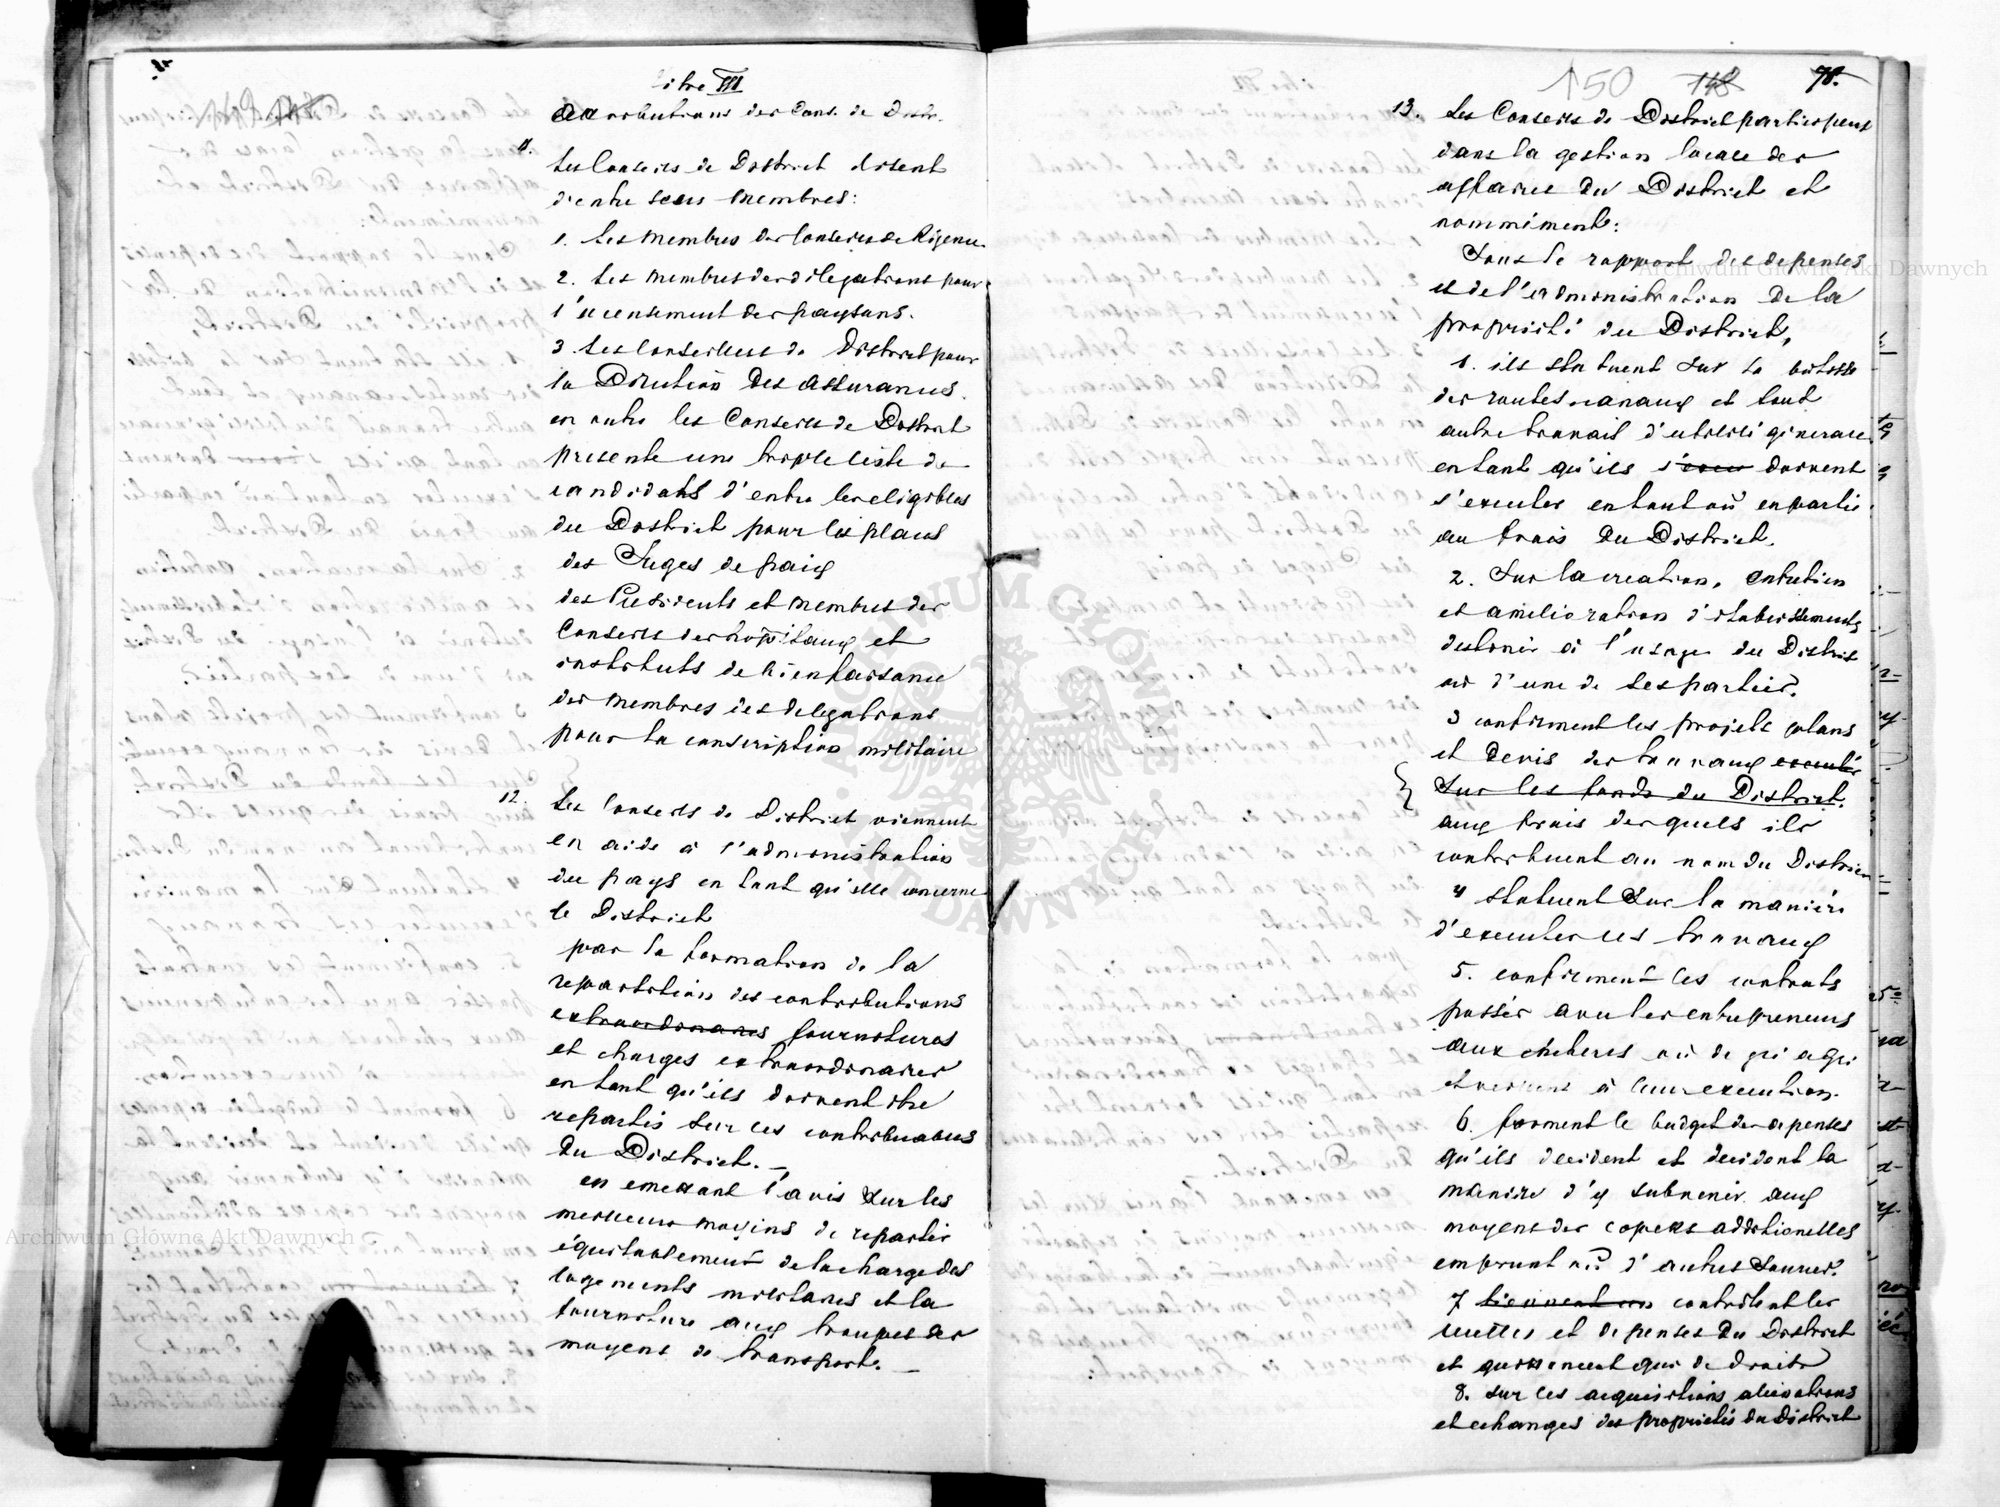 149
titre III
Attributions des Cons. de Distr.
11.
Les Conseils de District elisent
d'entre leurs membres:
1. Les membres des Conseils de Régence
2. Les membres des délégations pour
l'acensement des paysans.
3. Les Conseillers de District pour
la Direction des assurances.
en outre les Conseils de District
presente une triple liste de
candidats d'entre les eligibles
du District pour les places
des Juges de paix
des Presidents et membres des
Conseils des hôpitaux et
instituts de bienfaisance
des membres des delegations
pour la conscription militaire
12.
Les Conseils de District viennent
en aide à l'administration
du pays en tant qu'elle concerne
le District
par la formation de la
repartition des contributions
extraordinaires fournitures
et charges extraordinaires
en tant qu'ils doivent être
repartis sur les contribuables
du District. —
en emettant l'avis sur les
meilleurs moyens de repartir
équitablement de la charge des
logements militaires et la
fourniture aux troupes des
moyens de transport. —
150 148 78.
13. Les Conseils de District participent
dans la gestion locale des
affaires du District et
nommément:
Sous le rapport des depenses
et de l'administration de la
propriété du District,
1. ils statuent sur la bâtisse
des routes, canaux et tout
autre travail d'utilité générale
en tant qu'ils s'exec doivent
s'executer en tout où en partie
au frais du District.
2. Sur la creation, entretien
et amélioration d'établissements
destinés à l'usage du District
où d'une de ses parties.
3 confirment les projets plans
et devis des travaux executés
sur les fonds du District.
aux frais desquels ils
contribuent au nom du District
4 statuent sur la manière
d'executer ces travaux
5. confirment les contrats
passés avec les entrepreneurs
aux encheres où de gré a gré
et veillent à leur execution.
6. forment le budget des depenses
qu'ils decident et decident la
manière d'y subvenir aux
moyens des copeks additionelles
emprunt où d'autres sources.
7 tiennent un controlent les
recettes et depenses du District
et quittancent qui de droit
8. sur les acquisitions alienations
et echanges des propriétés du District
Archiwum Główne Akt Dawnych
Archiwum Główne Akt Dawnych
ARCHIWUM GŁÓWNE AKT DAWNYCH